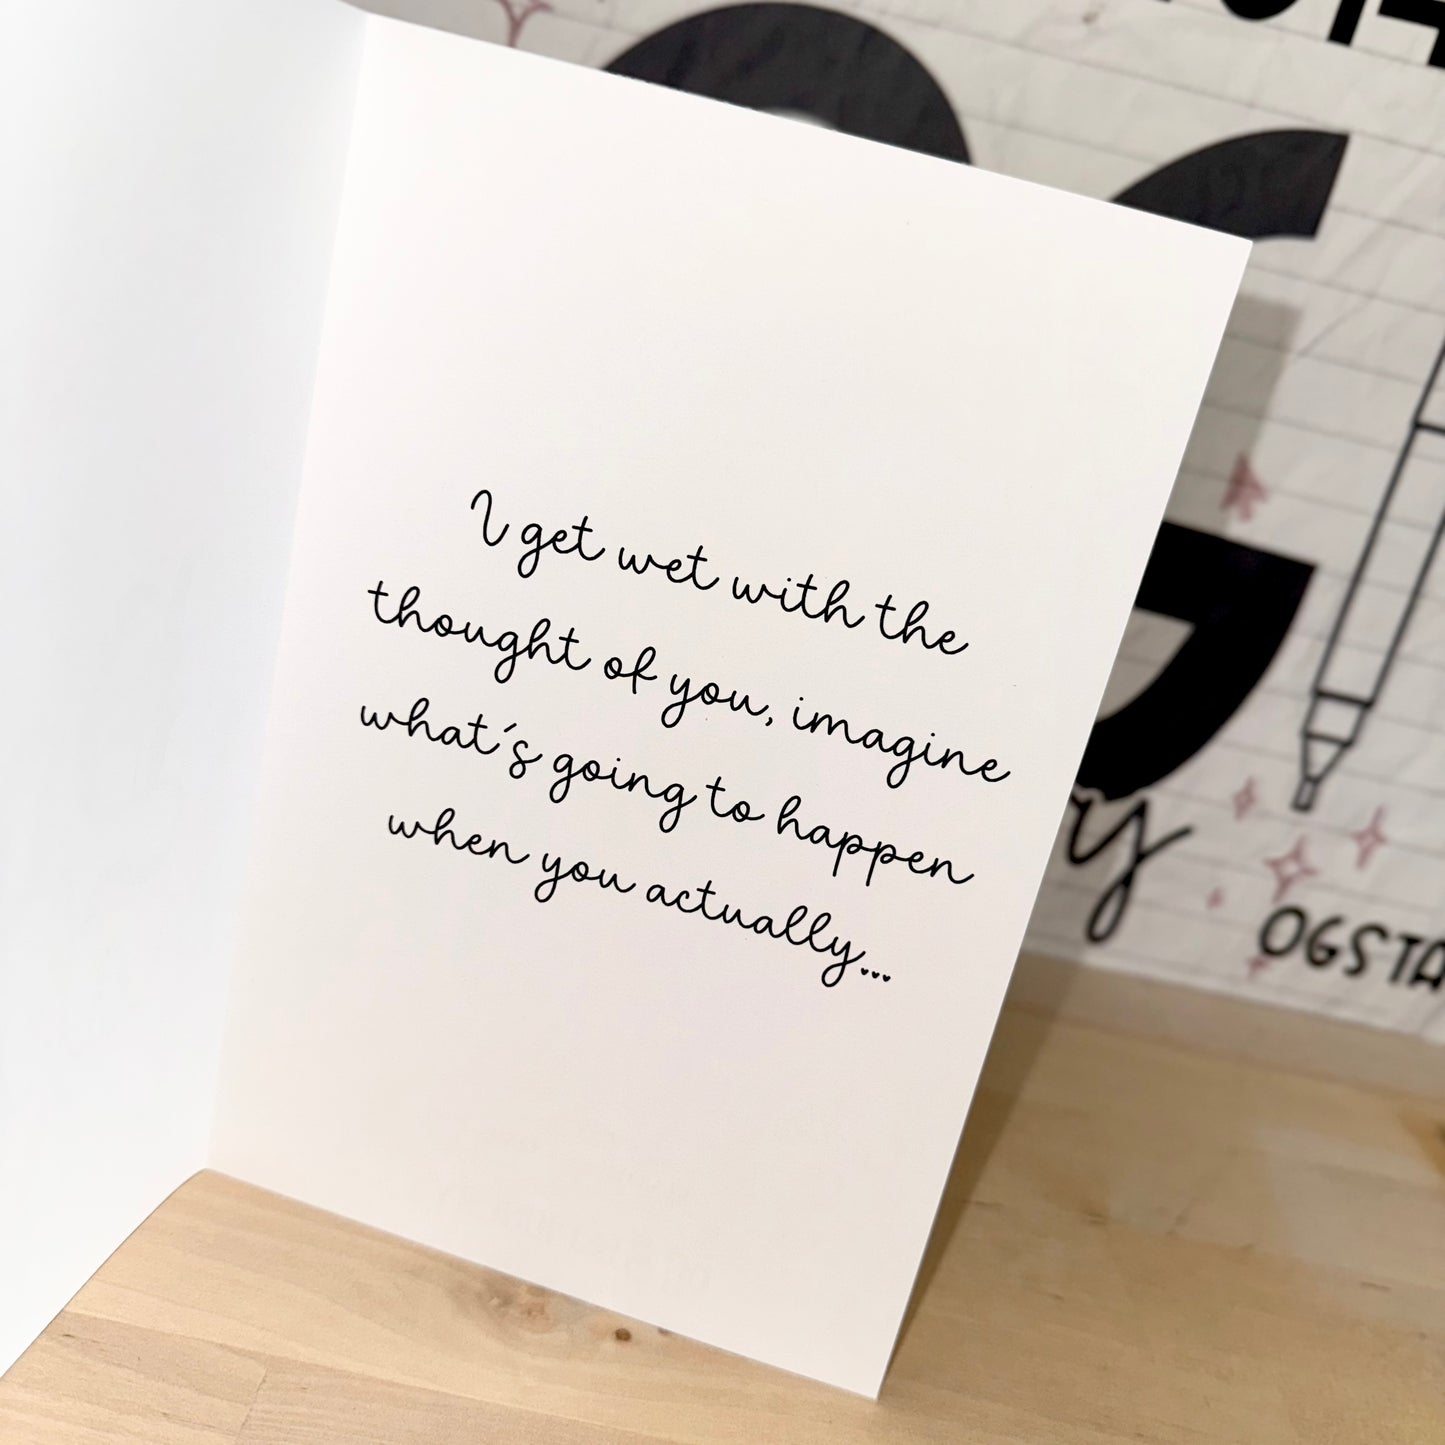 I get wet with the
thought of you, imagine
what's going to happen
when you actually...
OGSTA